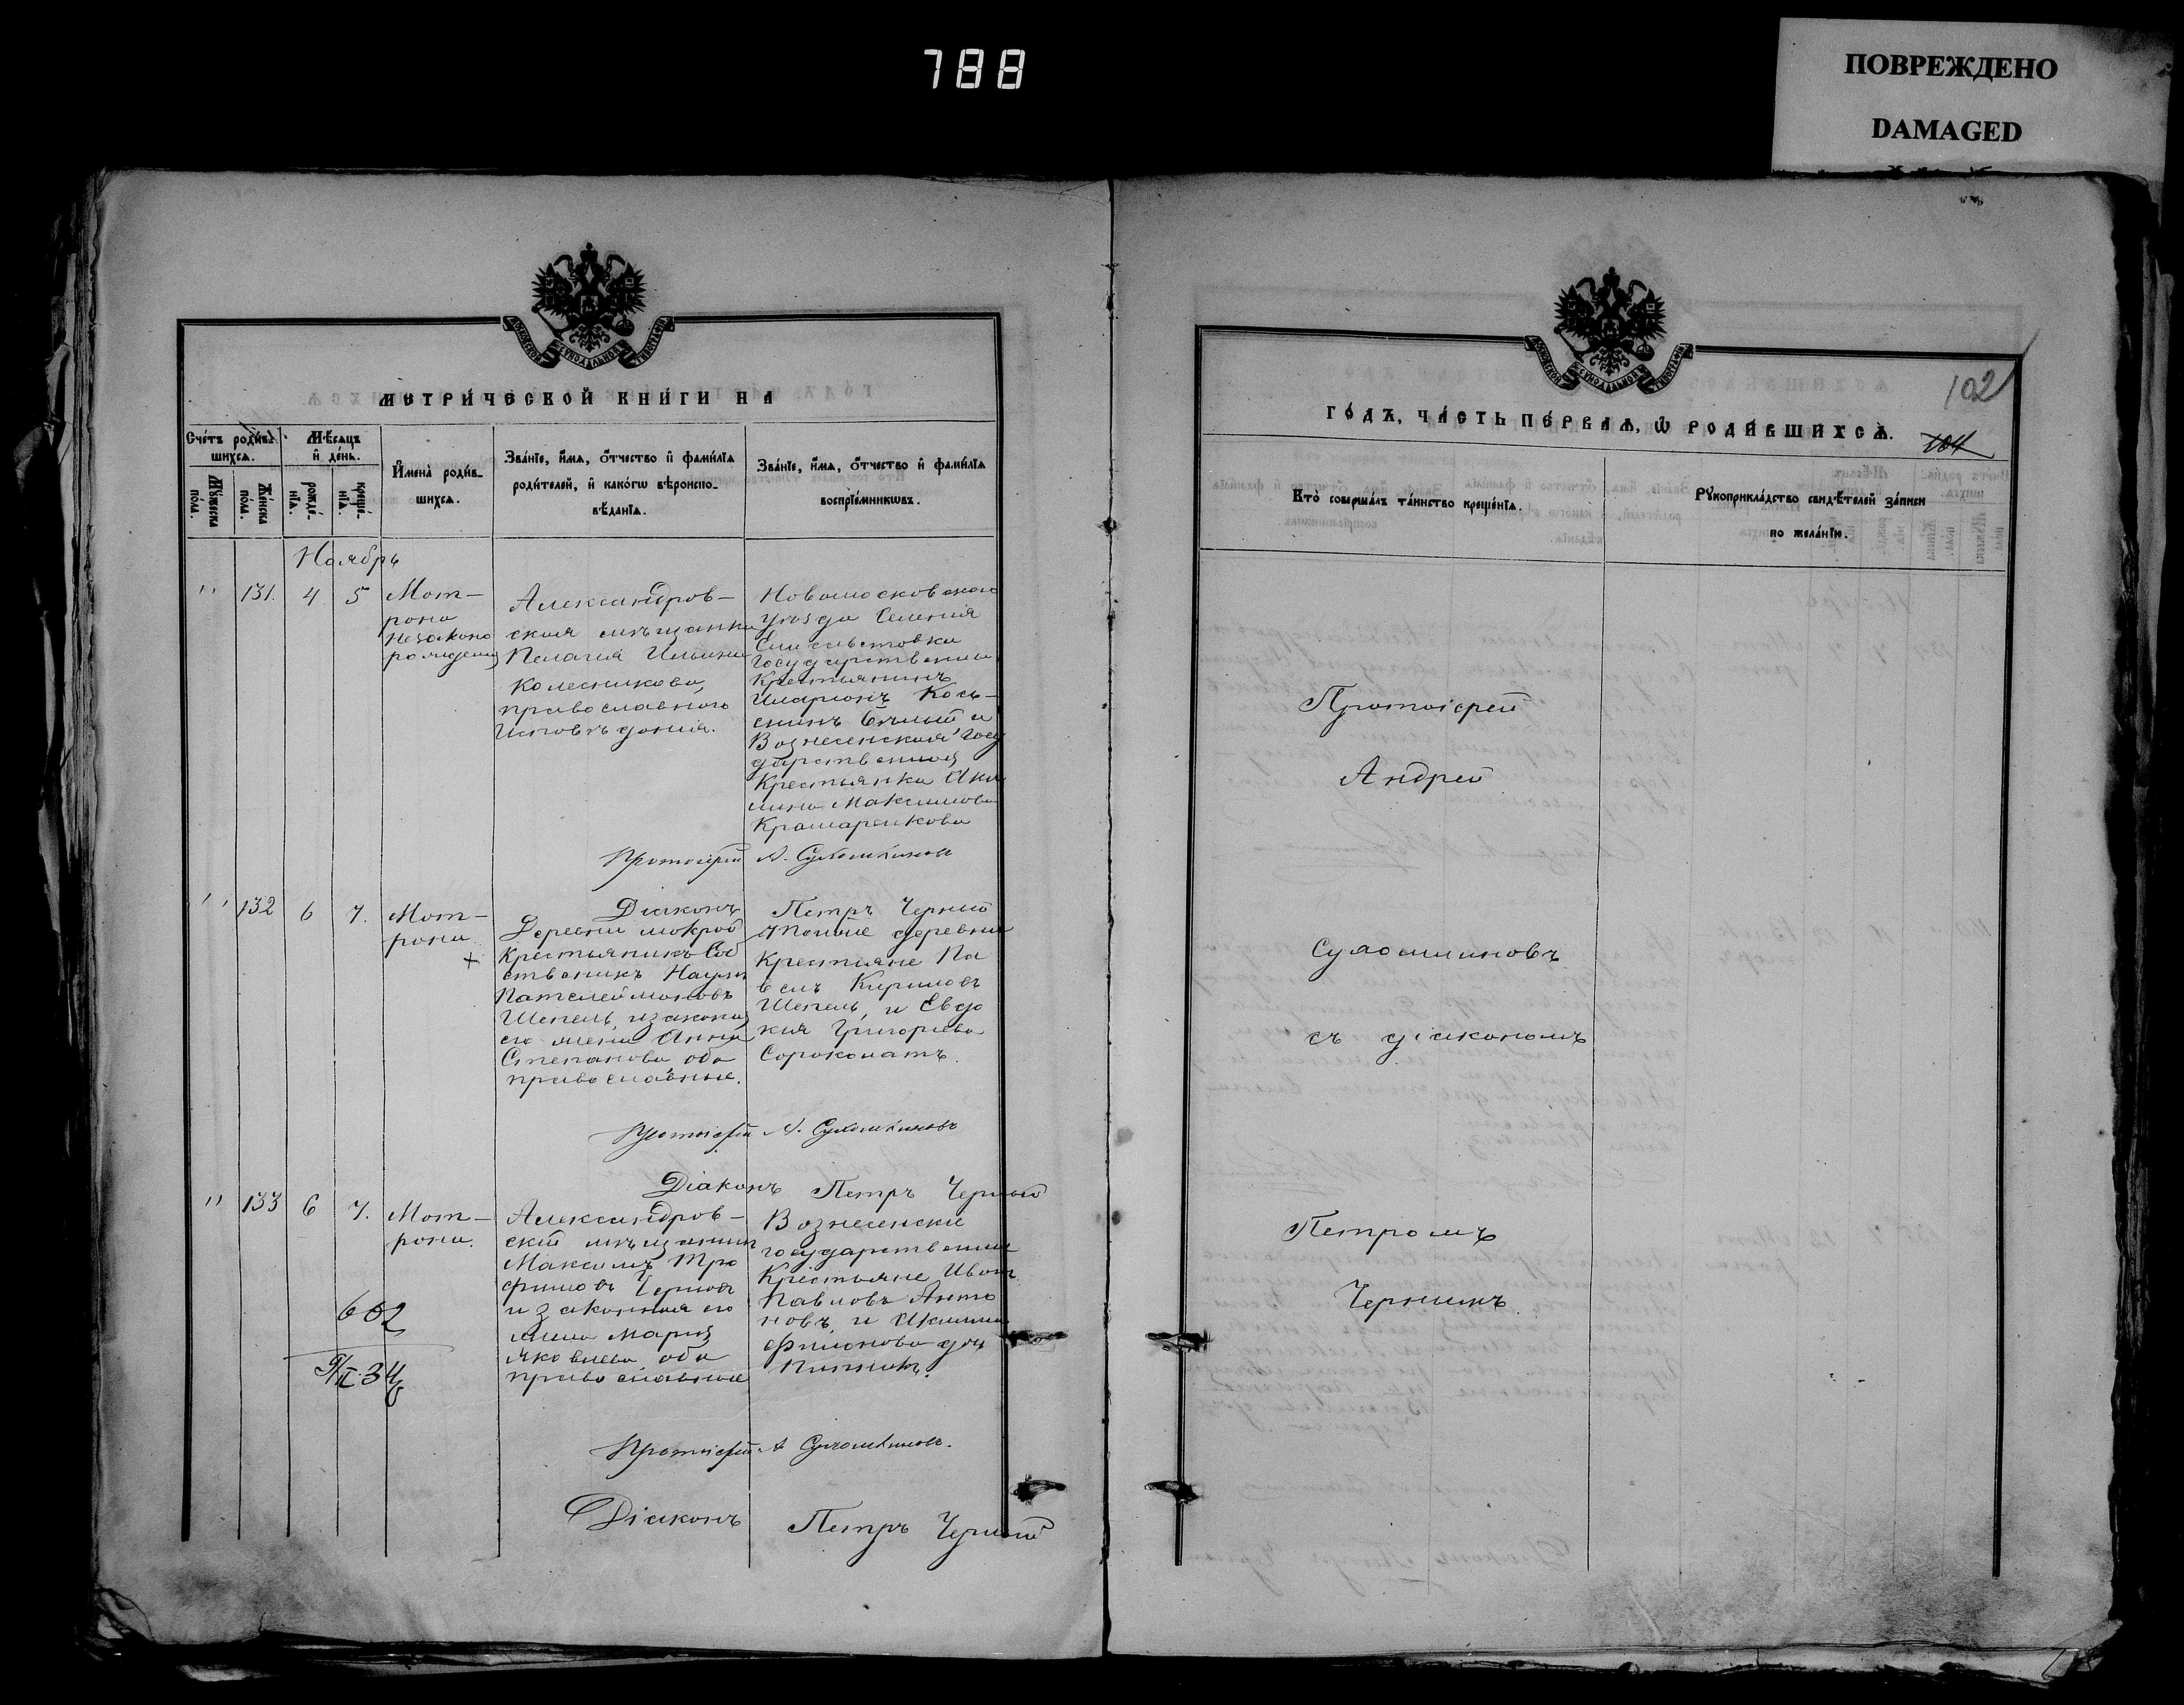 788
ПОВРЕЖДЕНО
DAMAGED
МОСКОВСКОЙ СѴНОДАЛЬНОЙ ТИПОГРАФІИ
МЕТРИ́ЧЕСКОЙ КНИ́ГИ НА
Сче́тъ роди́в-
шихся.
Му́жеска по́ла.
Же́нска по́ла.
Мѣ́сяцъ
и҆ де́нь.
рожде́-нїа.
креще́-нїа.
И҆мена̀ роди́в-
шихся.
Зва́нїе, и҆́мя, ѻ҆́тчество и҆ фамі́лїя
роди́телей, и҆ како́гѡ вѣроиспо-
вѣ́данїя.
Зва́нїе, и҆́мя, ѻ҆́тчество и҆ фамі́лїя
воспрїе́мникѡвъ.
Ноябрь
" 131. 4 5
Мот-
рона
Незаконо
рожденн
Александров-
ская мѣщанка
Пелагія Ильина
Колесникова,
православного
Исповѣданія.
Новомосковского
уѣзда Селенія
Государственны
Крестьянинъ
Иларіонъ Кось-
Бѣлый и
Вознесенская Госу
дарственная
Крестьянка Аки
лина Максимова
Крамаренкова
Протоіерей А. Сухомлиновъ
Діаконъ Петръ Черный
" 132 6 7.
Мот-
рона.
+
Деревни мокрой
Крестьянинъ Соб
ственикъ Наумъ
Пателеймоновъ
Шепель, и законна
его жена Анна
Степанова, оба
православные.
тойже деревни
Крестьяне Па
велъ Кириловъ
Шепель, и Евдо
кия Григорьева
Сорокопатъ.
Протоіерей А. Сухомлиновъ
Діаконъ Петръ Черный
" 133 6 7.
Мот-
рона.
602
Александров-
скій мѣщанинъ
Максимъ Тро
фимовъ Черновъ
и законная его
жена Марія
Яковлева, оба
православные
Вознесенские
государственные
Крестьяне Иванъ
Павловъ Анто
новъ и Акилина
филонова доч
Протоіерей А Сухомлиновъ.
Діаконъ Петръ Черный
МОСКОВСКОЙ СѴНОДАЛЬНОЙ ТИПОГРАФІИ
102
ГО́ДЪ, ЧА́СТЬ ПЕ́РВАЯ, Ѡ҆ РОДИ́ВШИХСЯ.
104
Кто̀ соверша́лъ та́инство креще́нїя.
Рꙋкоприкла́дство свидѣ́телей за́писи
по жела́нїю.
Протоіерей
Андрей
Сухомлиновъ
съ діакономъ
Петромъ
Чернымъ.